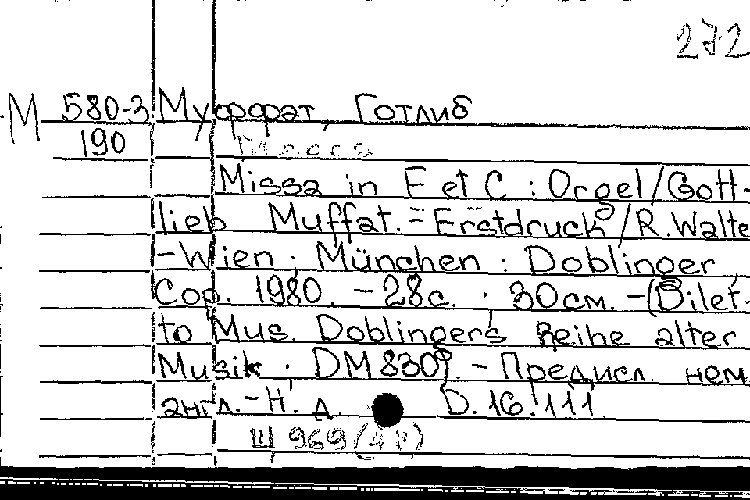 272
М 580-3 Муффат, Готлиб
190 Месса
Missa in F et C : Orgel/Gott-
lieb Muffat. = Erstdruck/R.Walte
-Wien ; München : Doblinger,
Cop. 1980. -28c. ; 30см. -(Dilet-
to Mus. Doblingers Reihe alter
Musik ; DM 830). - Предисл. нем.
англ.-Н. д. D.16.111
Щ 969(4 )